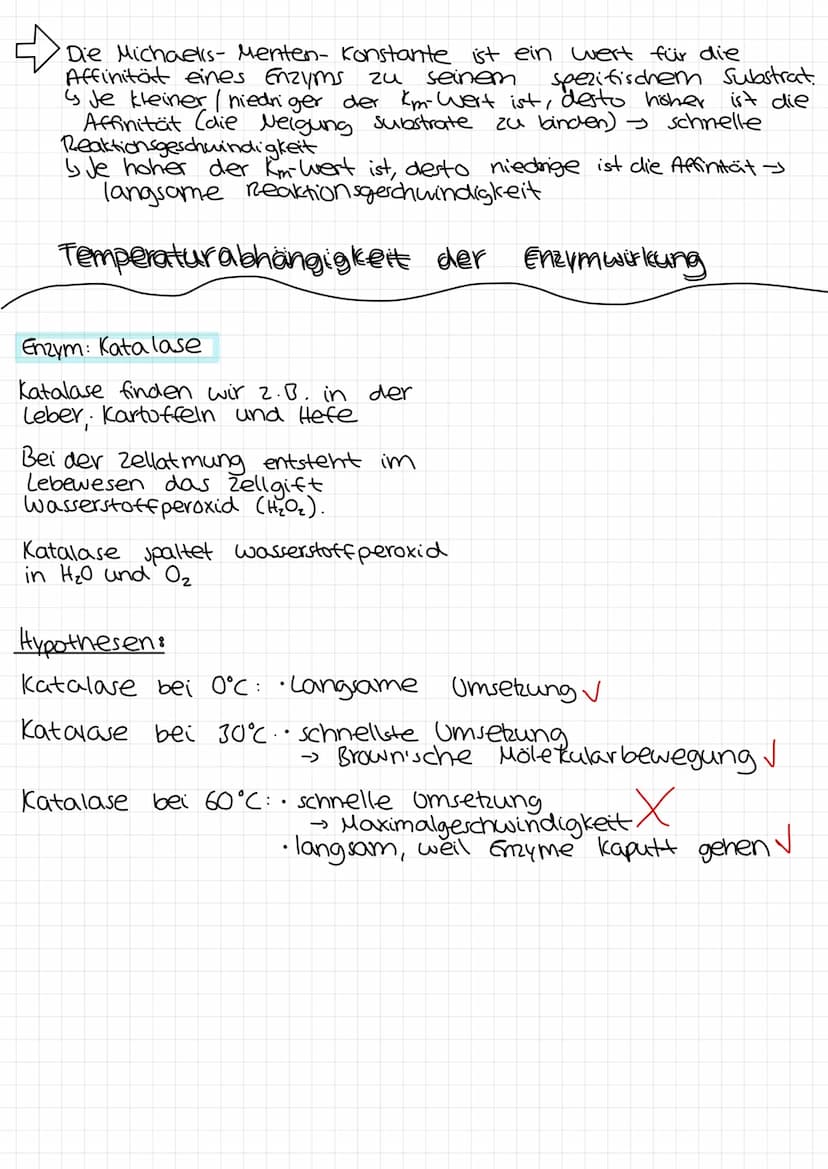 Die Michaelis-Menten-Konstante ist ein Wert für die
Affinität eines Enzyms zu seinem spezifischem Substrat.
↳ Je kleiner / niedriger der Km-Wert ist, desto höher ist die
Affinität (die Neigung Substrate zu binden) → schnelle
Reaktionsgeschwindigkeit
↳ Je hoher der Km-Wert ist, desto niedrige ist die Affinität →
langsame Reaktionsgeschwindigkeit
Temperaturabhängigkeit der Enzymwirkung
Enzym: Katalase
Katalase finden wir z.B. in der
Leber, Kartoffeln und Hefe
Bei der Zellatmung entsteht im
Lebewesen das Zellgift
Wasserstoffperoxid (H₂O₂).
Katalase spaltet Wasserstoffperoxid
in H₂O und O₂
Hypothesen:
Katalase bei 0°C: · Langsame Umsetzung ✓
Katalase bei 30°C: · schnellste Umsetzung
→ Brown'sche Molekularbewegung ✓
Katalase bei 60°C: · schnelle Umsetzung
→ Maximalgeschwindigkeit X
· langsam, weil Enzyme kaputt gehen ✓